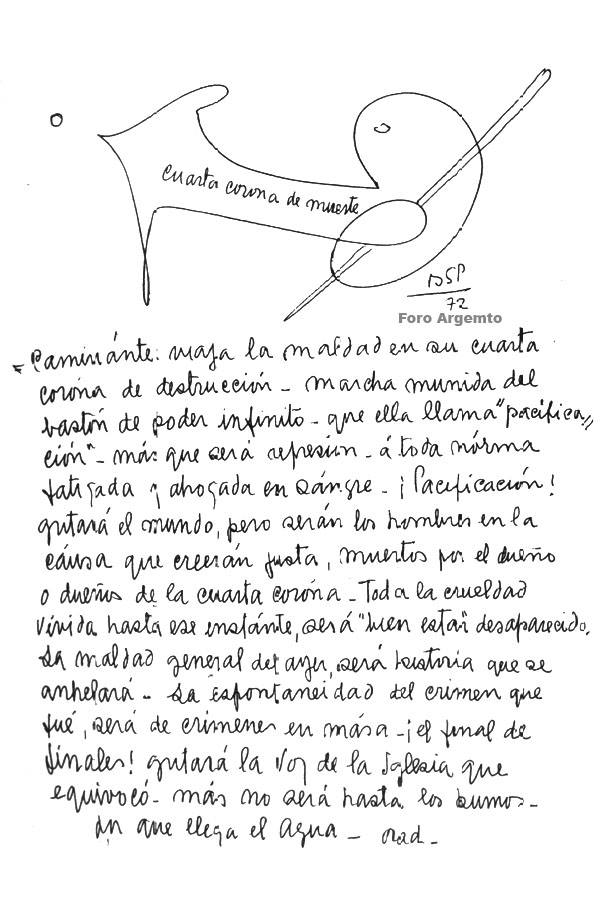 cuarta corona de muerte
BSP
72
Foro Argemto
Caminánte: viaja la maldad en su cuarta
corona de destrucción - marcha munida del
bastón de poder infinito - que ella llama "pacifica"
ción" - más que será represion - á toda nórma
fatigada y ahogada en sángre - ¡Pacificación!
gritará el mundo, pero serán los hombres en la
cáusa que creerán justa, muertos por el dueño
o dueños de la cuarta coróna - Toda la crueldad
vivida hasta ese instánte, será "buen estar" desaparecido.
La maldad general del ayer, será historia que se
anhelará - La espontaneidad del crimen que
fué, será de crimenes en mása - ¡el final de
finales! gritará la Voz de la Iglesia que
equivocó - más no será hasta los humos -
en que llega el Agua -